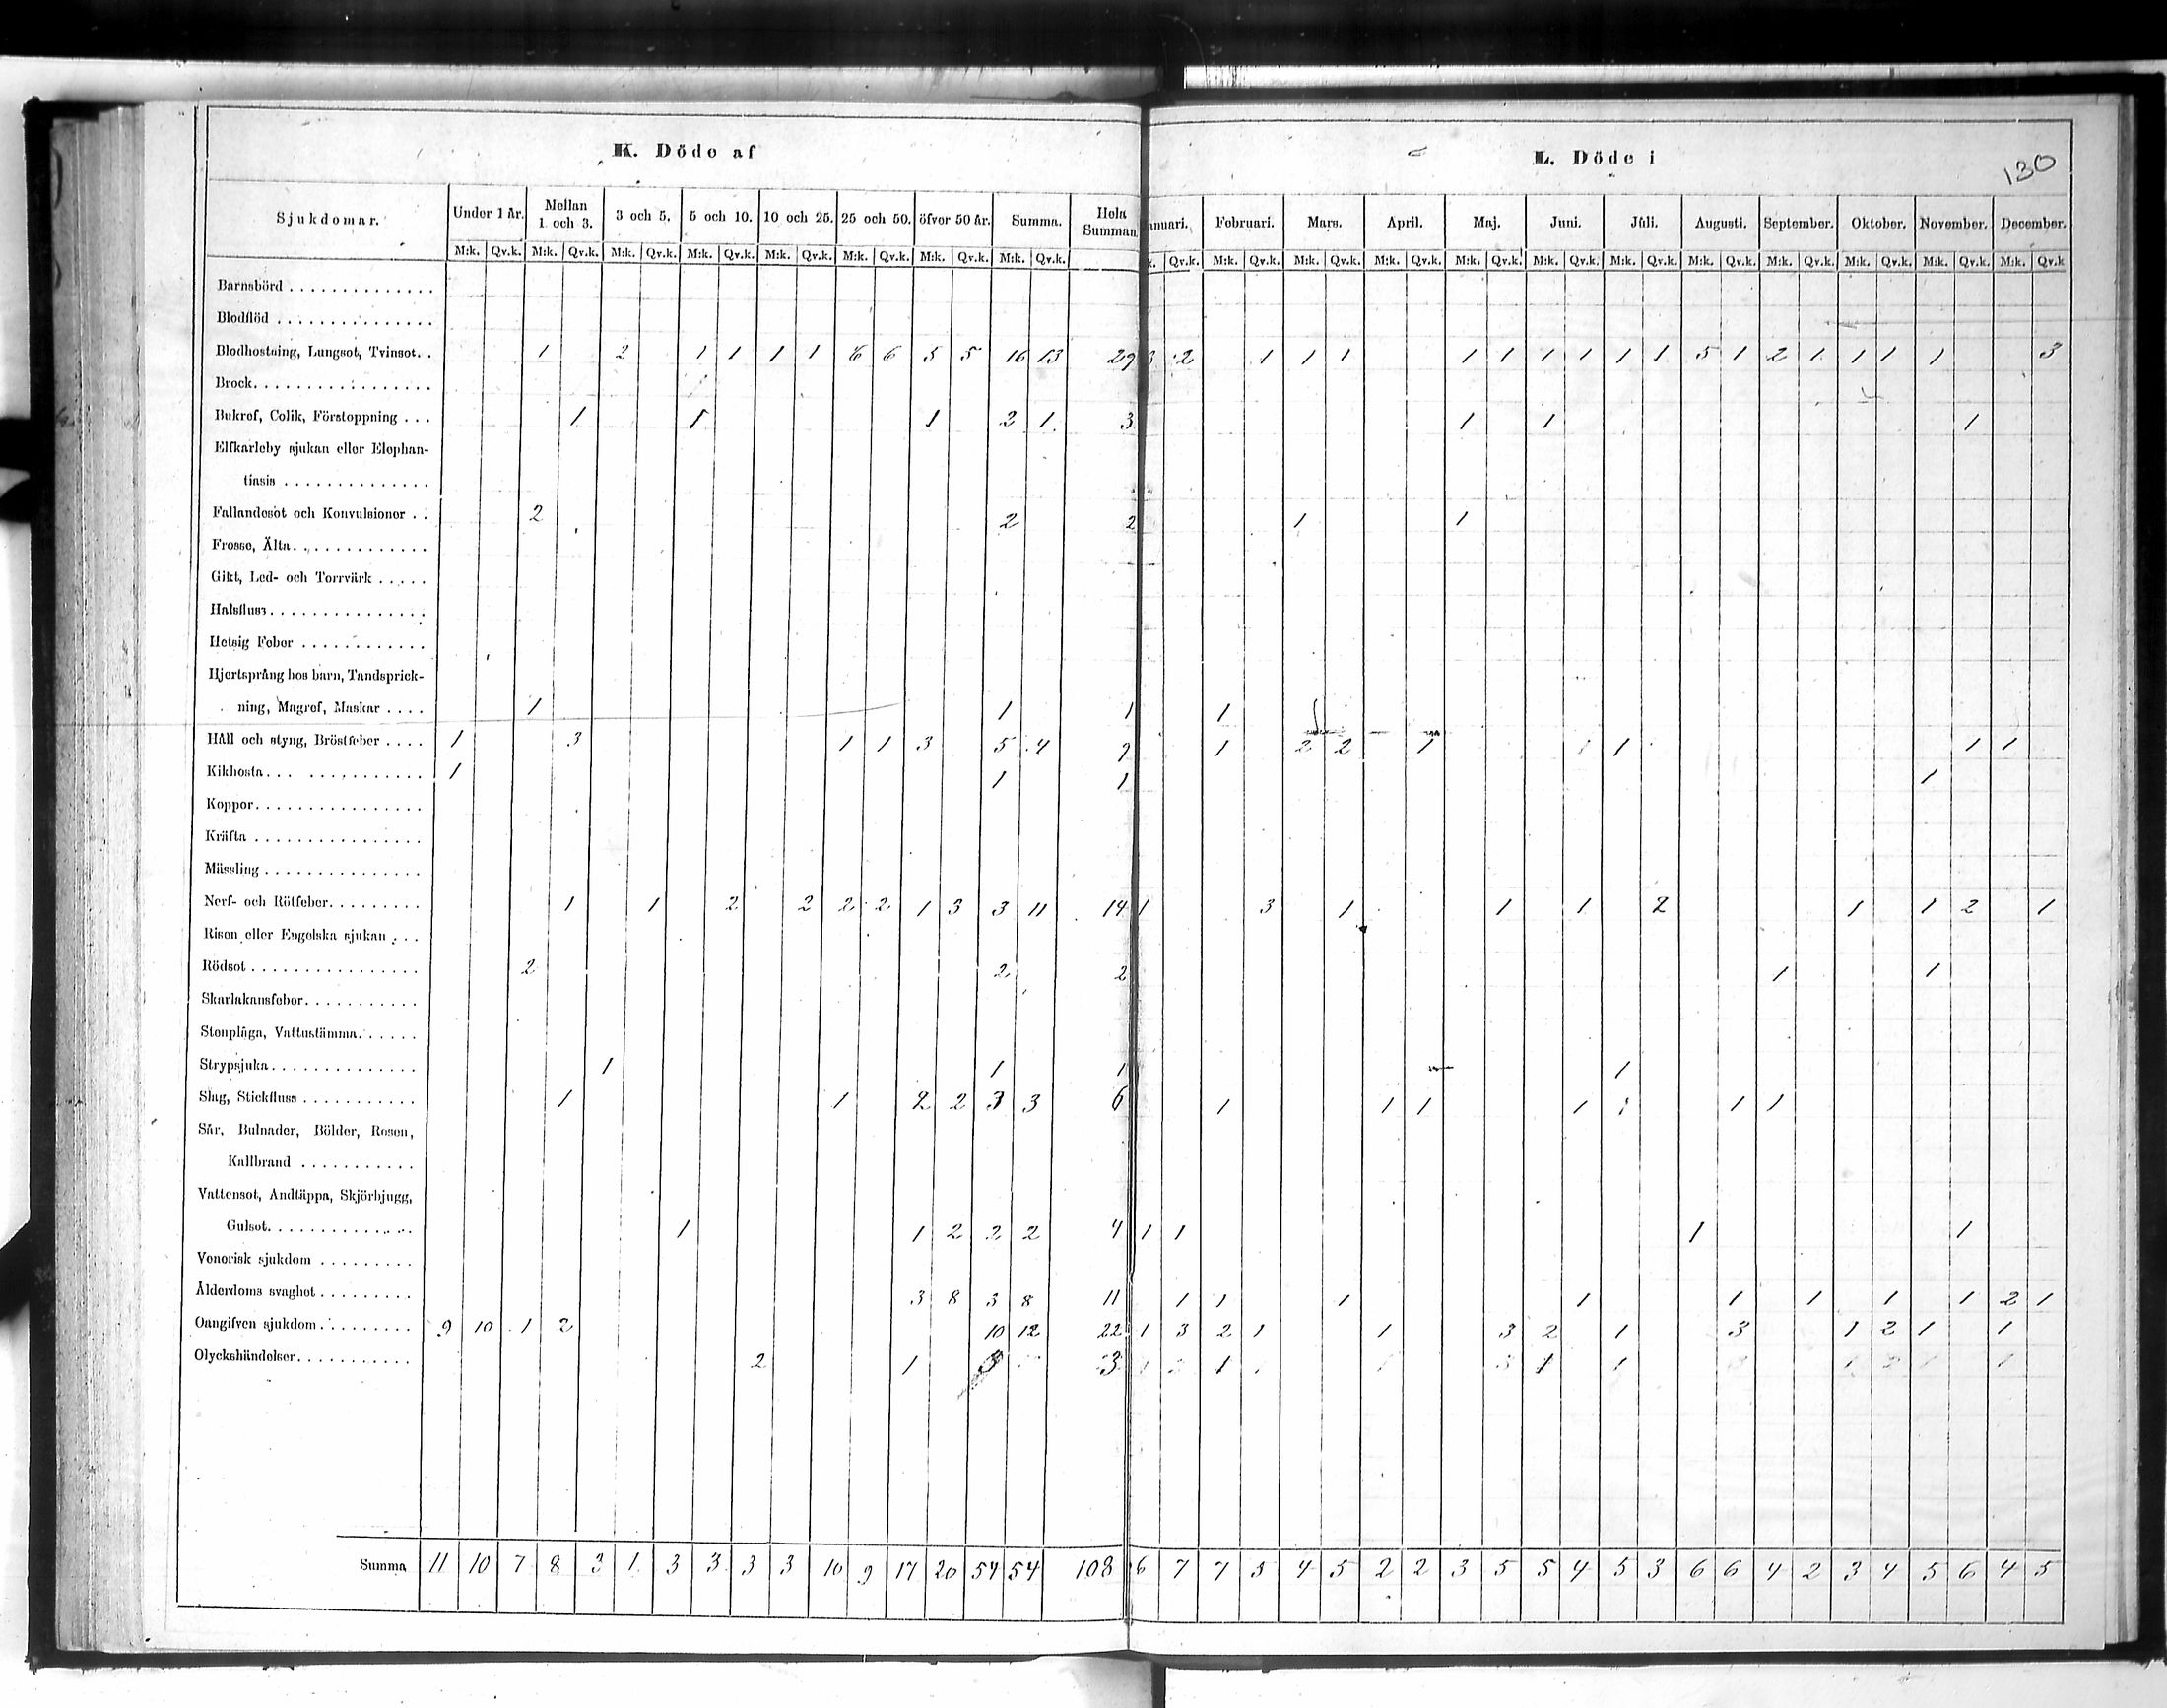 K. Döde af
L. Döde i
130
Sjukdomar. Under 1 år. Mellan 1 och 3. 3 och 5. 5 och 10. 10 och 25. 25 och 50. öfver 50 år. Summa. Hela Summan. anuari. Februari. Mars. April. Maj. Juni. Juli. Augusti. September. Oktober. November. December.
M:k. Qv.k. M:k. Qv.k. M:k. Qv.k. M:k. Qv.k. M:k. Qv.k. M:k. Qv.k. M:k. Qv.k. M:k. Qv.k. k. Qv.k. M:k. Qv.k. M:k. Qv.k. M:k. Qv.k. M:k. Qv.k. M:k. Qv.k. M:k. Qv.k. M:k. Qv.k. M:k. Qv.k. M:k. Qv.k. M:k. Qv.k. M:k. Qv.k
Barnsbörd
Blodflöd
Blodhostning, Lungsot, Tvinsot. 1 2 1 1 1 1 6 6 5 5 16 13 29 3 2 1 1 1 1 1 1 1 1 1 5 1 2 1 1 1 1 3
Brock
Bukref, Colik, Förstoppning 1 1 1 2 1 3 1 1 1
Elfkarleby sjukan eller Elephan-
tiasis
Fallandesot och Konvulsioner 2 2 2 1 1
Frossa, Älta
Gikt, Led- och Torrvärk
Halsfluss
Hetsig Feber
Hjertsprång hos barn, Tandsprick-
ning, Magref, Maskar 1 1 1 1
Håll och styng, Bröstfeber 1 3 1 1 3 5 4 9 1 2 2 1 1 1 1
Kikhosta 1 1 1 1
Koppor
Kräfta
Mässling
Nerf- och Rötfeber 1 1 2 2 2 2 1 3 3 11 14 1 3 1 1 1 2 1 1 2 1
Risen eller Engelska sjukan
Rödsot 2 2 2 1 1
Skarlakansfeber
Stenplåga, Vattustämma
Strypsjuka 1 1 1 1
Slag, Stickfluss 1 1 2 2 3 3 6 1 1 1 1 1 1 1
Sår, Bulnader, Bölder, Rosen,
Kallbrand
Vattensot, Andtäppa, Skjörbjugg,
Gulsot 1 1 2 2 2 4 1 1 1 1
Venerisk sjukdom
Ålderdoms svaghet 3 8 3 8 11 1 1 1 1 1 1 1 1 2 1
Oangifven sjukdom 9 10 1 2 10 12 22 1 3 2 1 1 3 2 1 3 1 2 1 1
Olyckshändelser 2 1 3 3 1 1 1
Summa 11 10 7 8 3 1 3 3 3 3 10 9 17 20 54 54 108 6 7 7 5 4 5 2 2 3 5 5 4 5 3 6 6 4 2 3 4 5 6 4 5